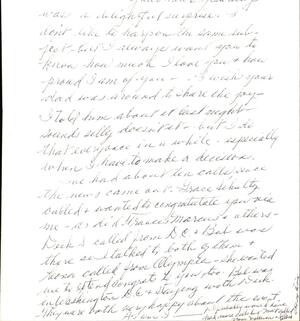 was a delightful surprise. I
don't like to harp on the same sub-
ject - but I always want you to
know how much I love you & how
proud I am of you - wish your
dad was around to share the joy
I told him about it last night -
sounds silly doesn't it - but I do
that every once in a while - especially
when I have to make a decision.
had about ten calls since
the news came out. Grace Schultz
called & wanted to congratulate you via
me - as did Frances Marcus & others -
Dick S called from D.C & Bob was
there so I talked to both of them &
called from Olympia - she wanted
me to extend congrats to you too. Bob was
in Washington D.C & staying with Dick.
They were both very happy about the event.